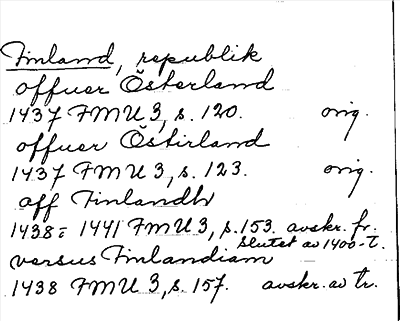 Finland, republik
offuer Österland
1437 FMU 3, s. 120. orig.
offuer Östirland
1437 FMU 3, s. 123. orig.
aff Finlandh
1438-1441 FMU 3, s. 153. avskr. fr.
slutet av 1400-t.
versus Finlandiam
1438 FMU 3, s. 157. avskr. av tr.